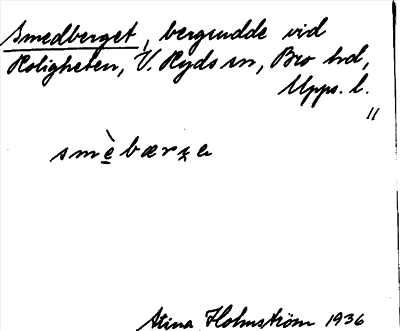 Smedberget, bergudde vid
Roligheten, V. Ryds sn, Bro hd,
Upps. l.
"
smè̱bærʒe
Stina Holmström 1936